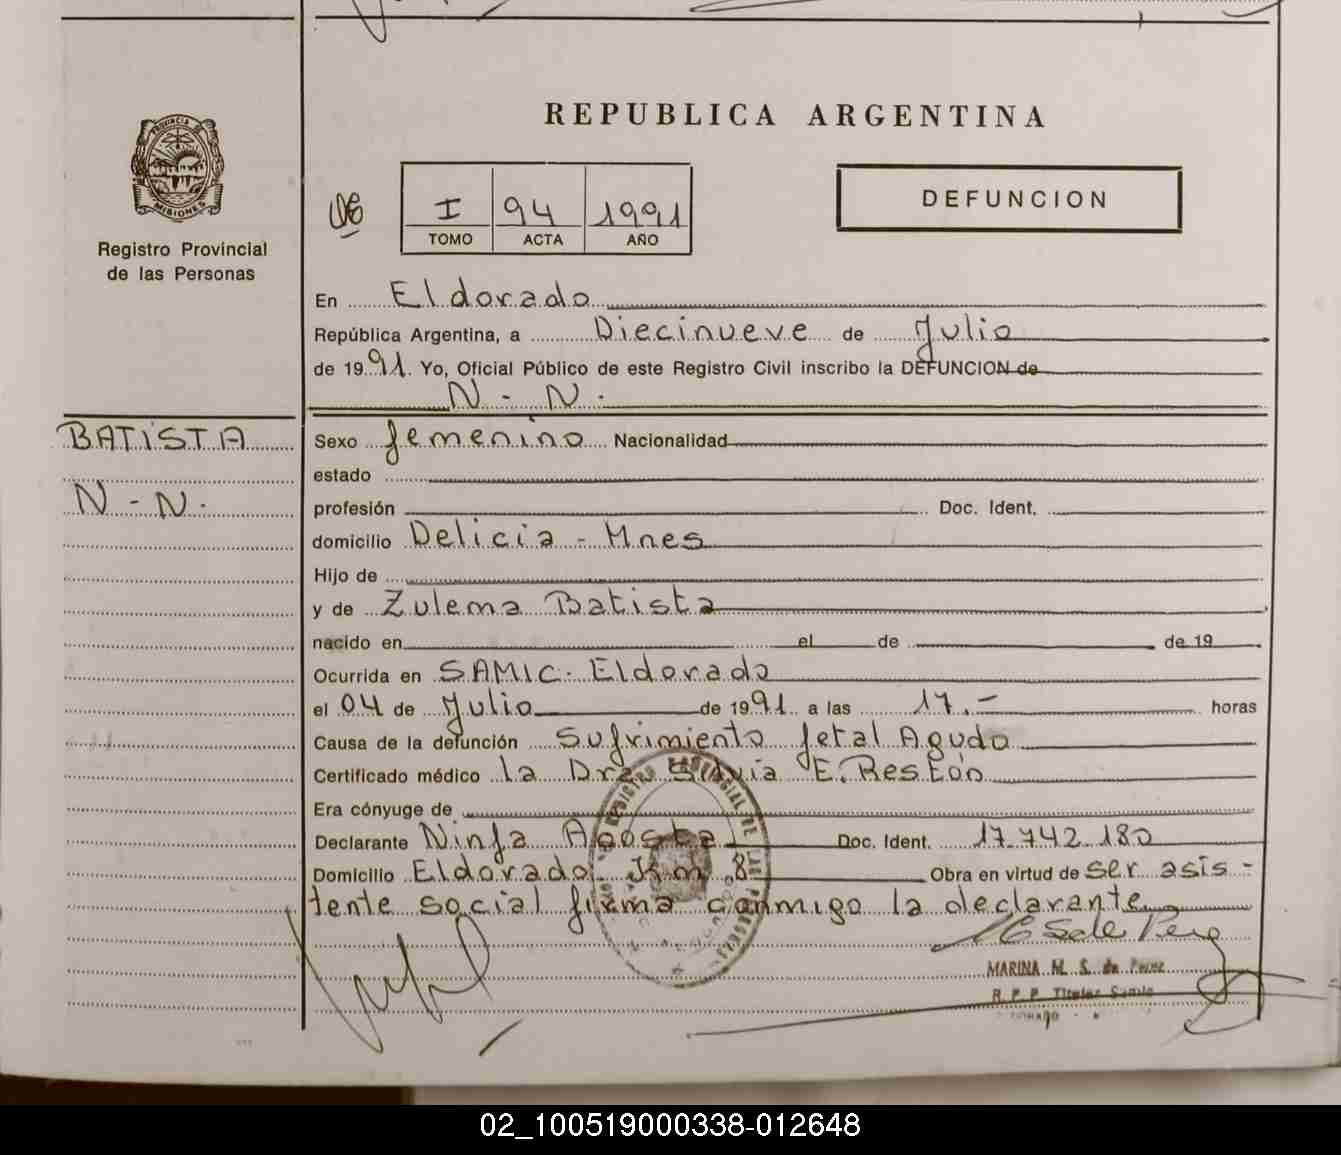 REPUBLICA ARGENTINA
PROVINCIA DE
MISIONES
Registro Provincial
de las Personas
I 94 1991
TOMO ACTA AÑO
DEFUNCION
En Eldorado
República Argentina, a Diecinueve de Julio
de 1991. Yo, Oficial Público de este Registro Civil inscribo la DEFUNCION de
N - N.
BATISTA
N - N.
Sexo femenino Nacionalidad
estado
profesión Doc. Ident.
domicilio Delicia - Mnes
Hijo de
y de Zulema Batista
nacido en el de de 19
Ocurrida en SAMIC. Eldorado
el 04 de Julio de 1991 a las 17.- horas
Causa de la defunción Sufrimiento fetal Agudo
Certificado médico la Dra Silvia E. Restón
Era cónyuge de
Declarante Ninfa Acosta Doc. Ident. 17.742.180
Domicilio Eldorado Km 8 Obra en virtud de ser asis-
tente social firma conmigo la declarante
REGISTRO PROVINCIAL DE LAS PERSONAS
MARINA M. S. de Perez
R. P. P. Titular Samic
02_100519000338-012648